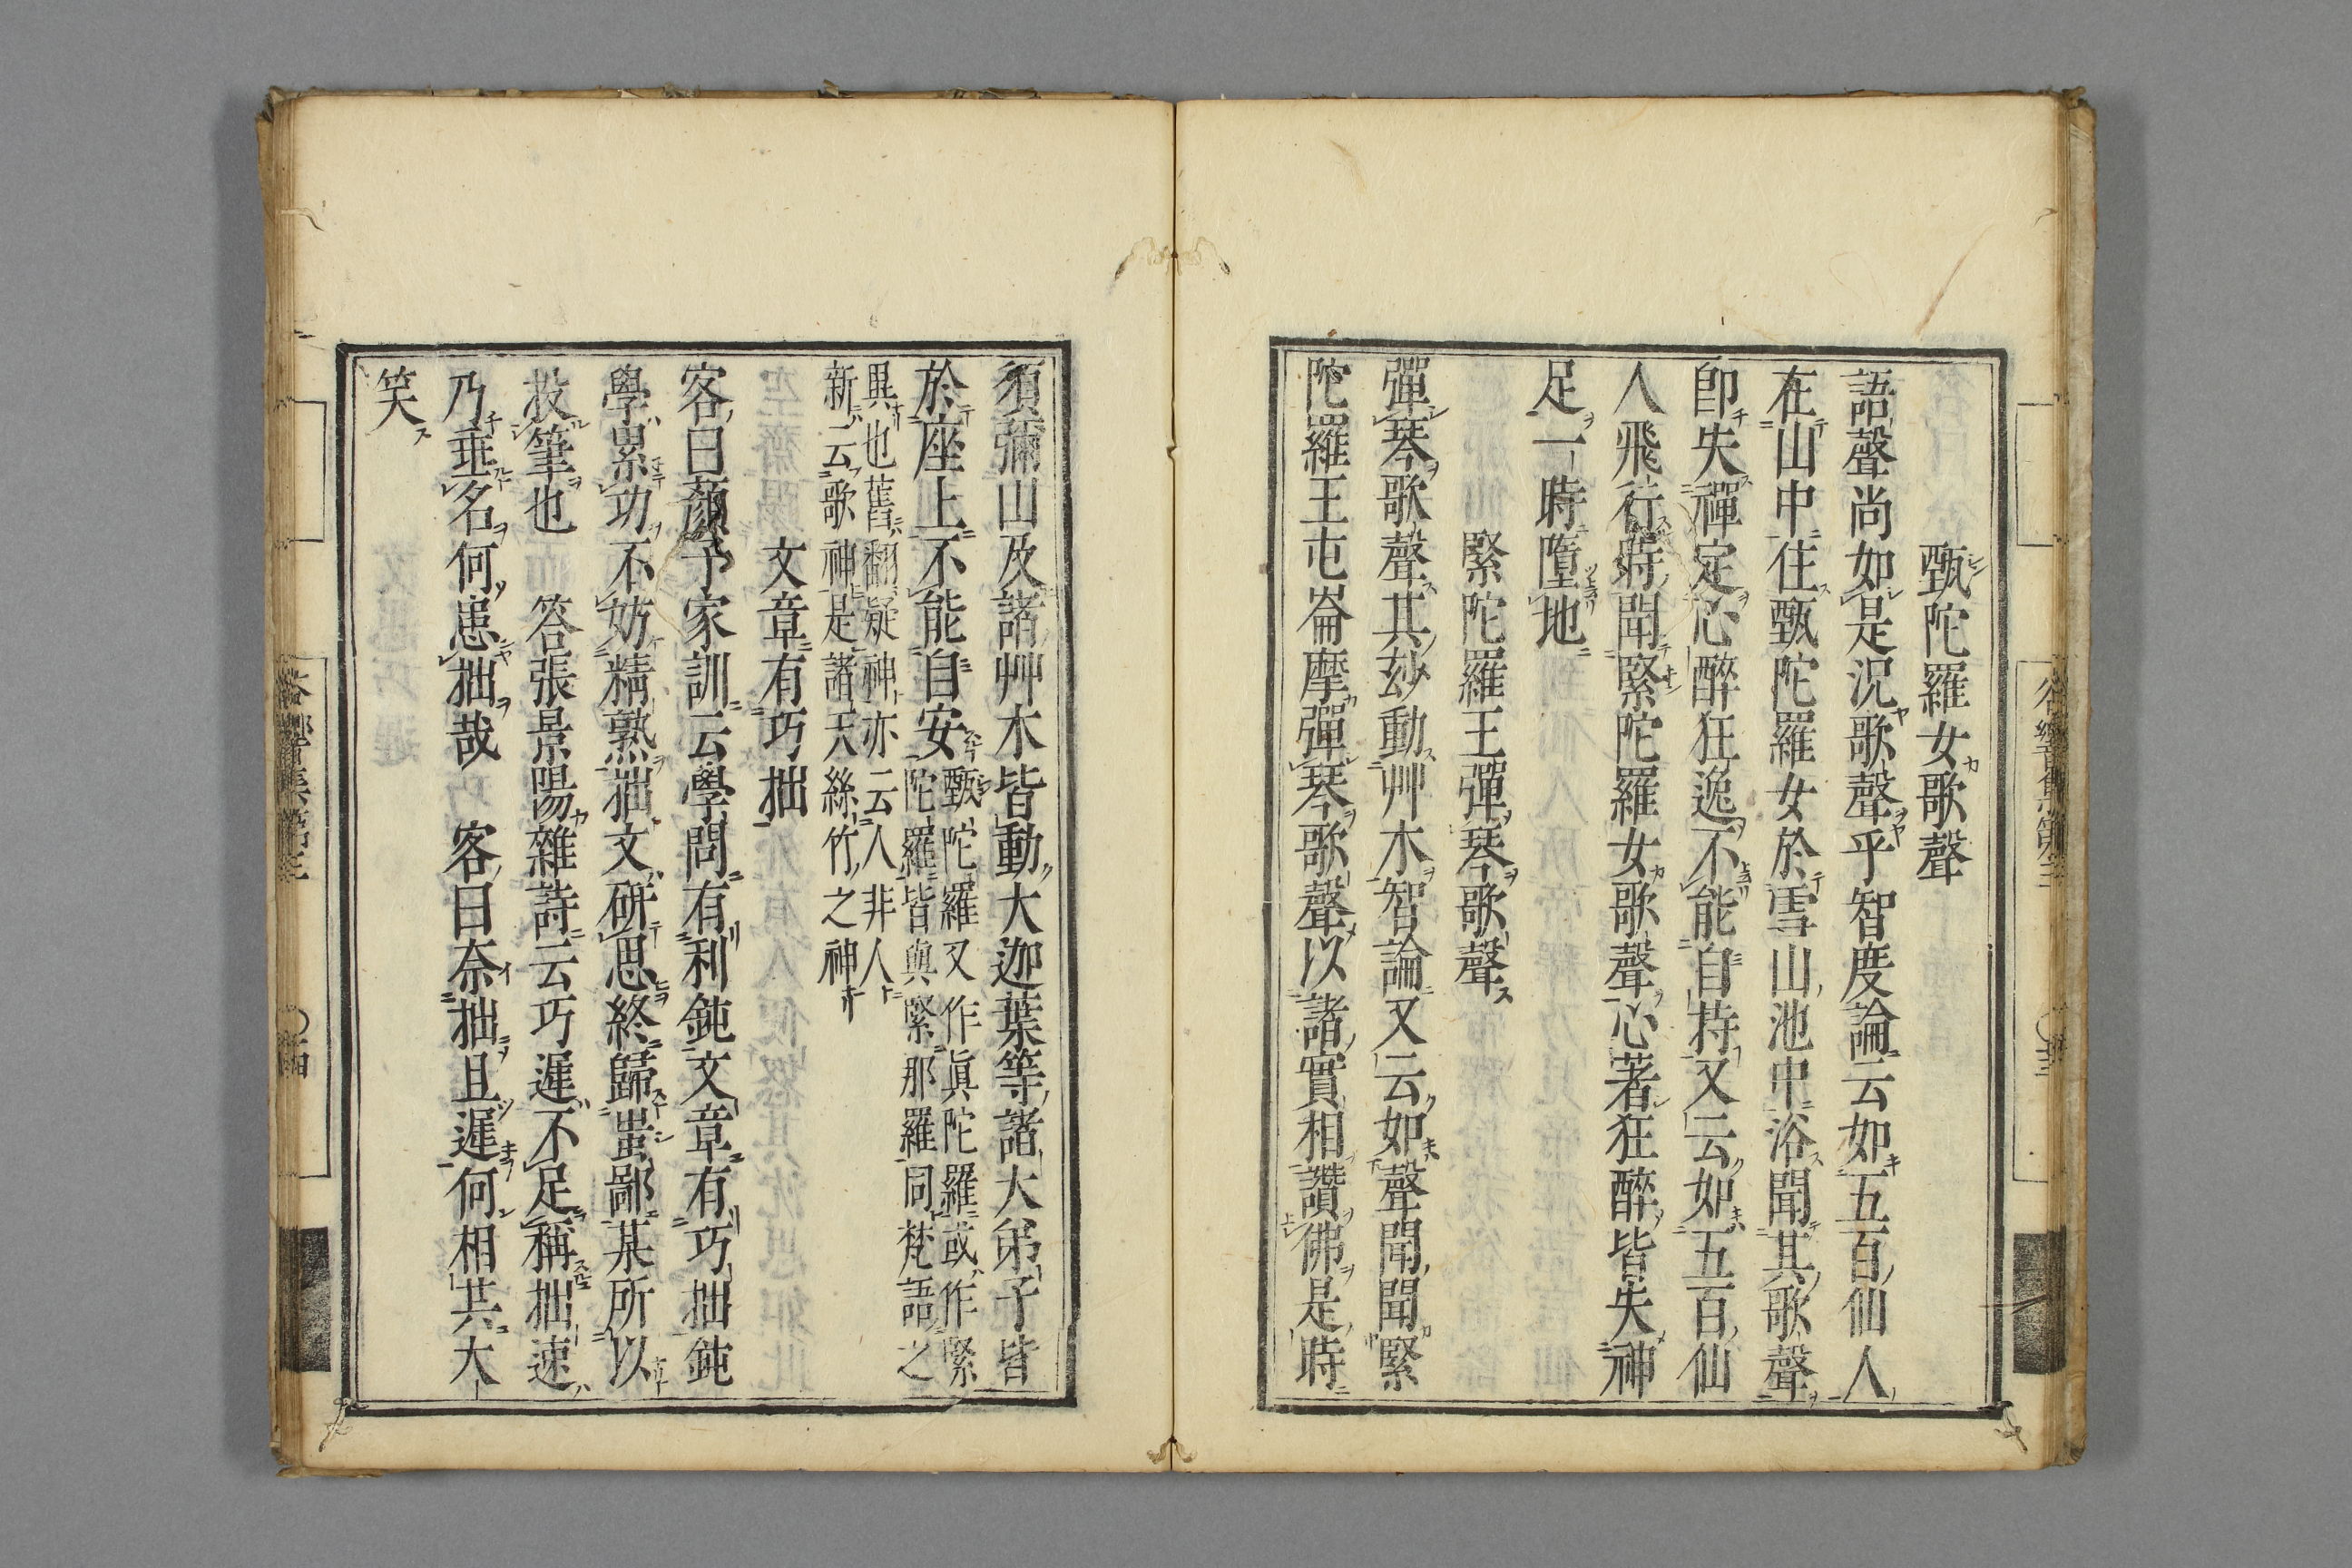 甄陀羅女歌聲
語聲尚如是況歌聲乎智度論云如五百仙人
在山中住甄陀羅女於雪山池中浴聞其歌聲
卽失禪定心醉狂逸不能自持又云如五百仙
人飛行時聞緊陀羅女歌聲心著狂醉皆失神
足一時墮地
緊陀羅王彈琴歌聲
彈琴歌聲其玅動艸木智論又云如聲聞聞緊
陀羅王屯崙摩彈琴歌聲以諸實相讚佛是時
須彌山及諸艸木皆動大迦葉等諸大弟子皆
於座上不能自安
甄陀羅又作眞陀羅或作緊
陀羅皆與緊那羅同梵語之
異也舊翻疑神亦云人非人
新云歌神是諸天絲竹之神
文章有巧拙
客曰顏予家訓云學問有利鈍文章有巧拙鈍
學累功不妨精熟拙文硏思終歸蚩鄙某所以
投筆也　答張景陽雜詩云巧遲不足稱拙速
乃垂名何患拙哉　客曰奈拙且遲何相共大
笑